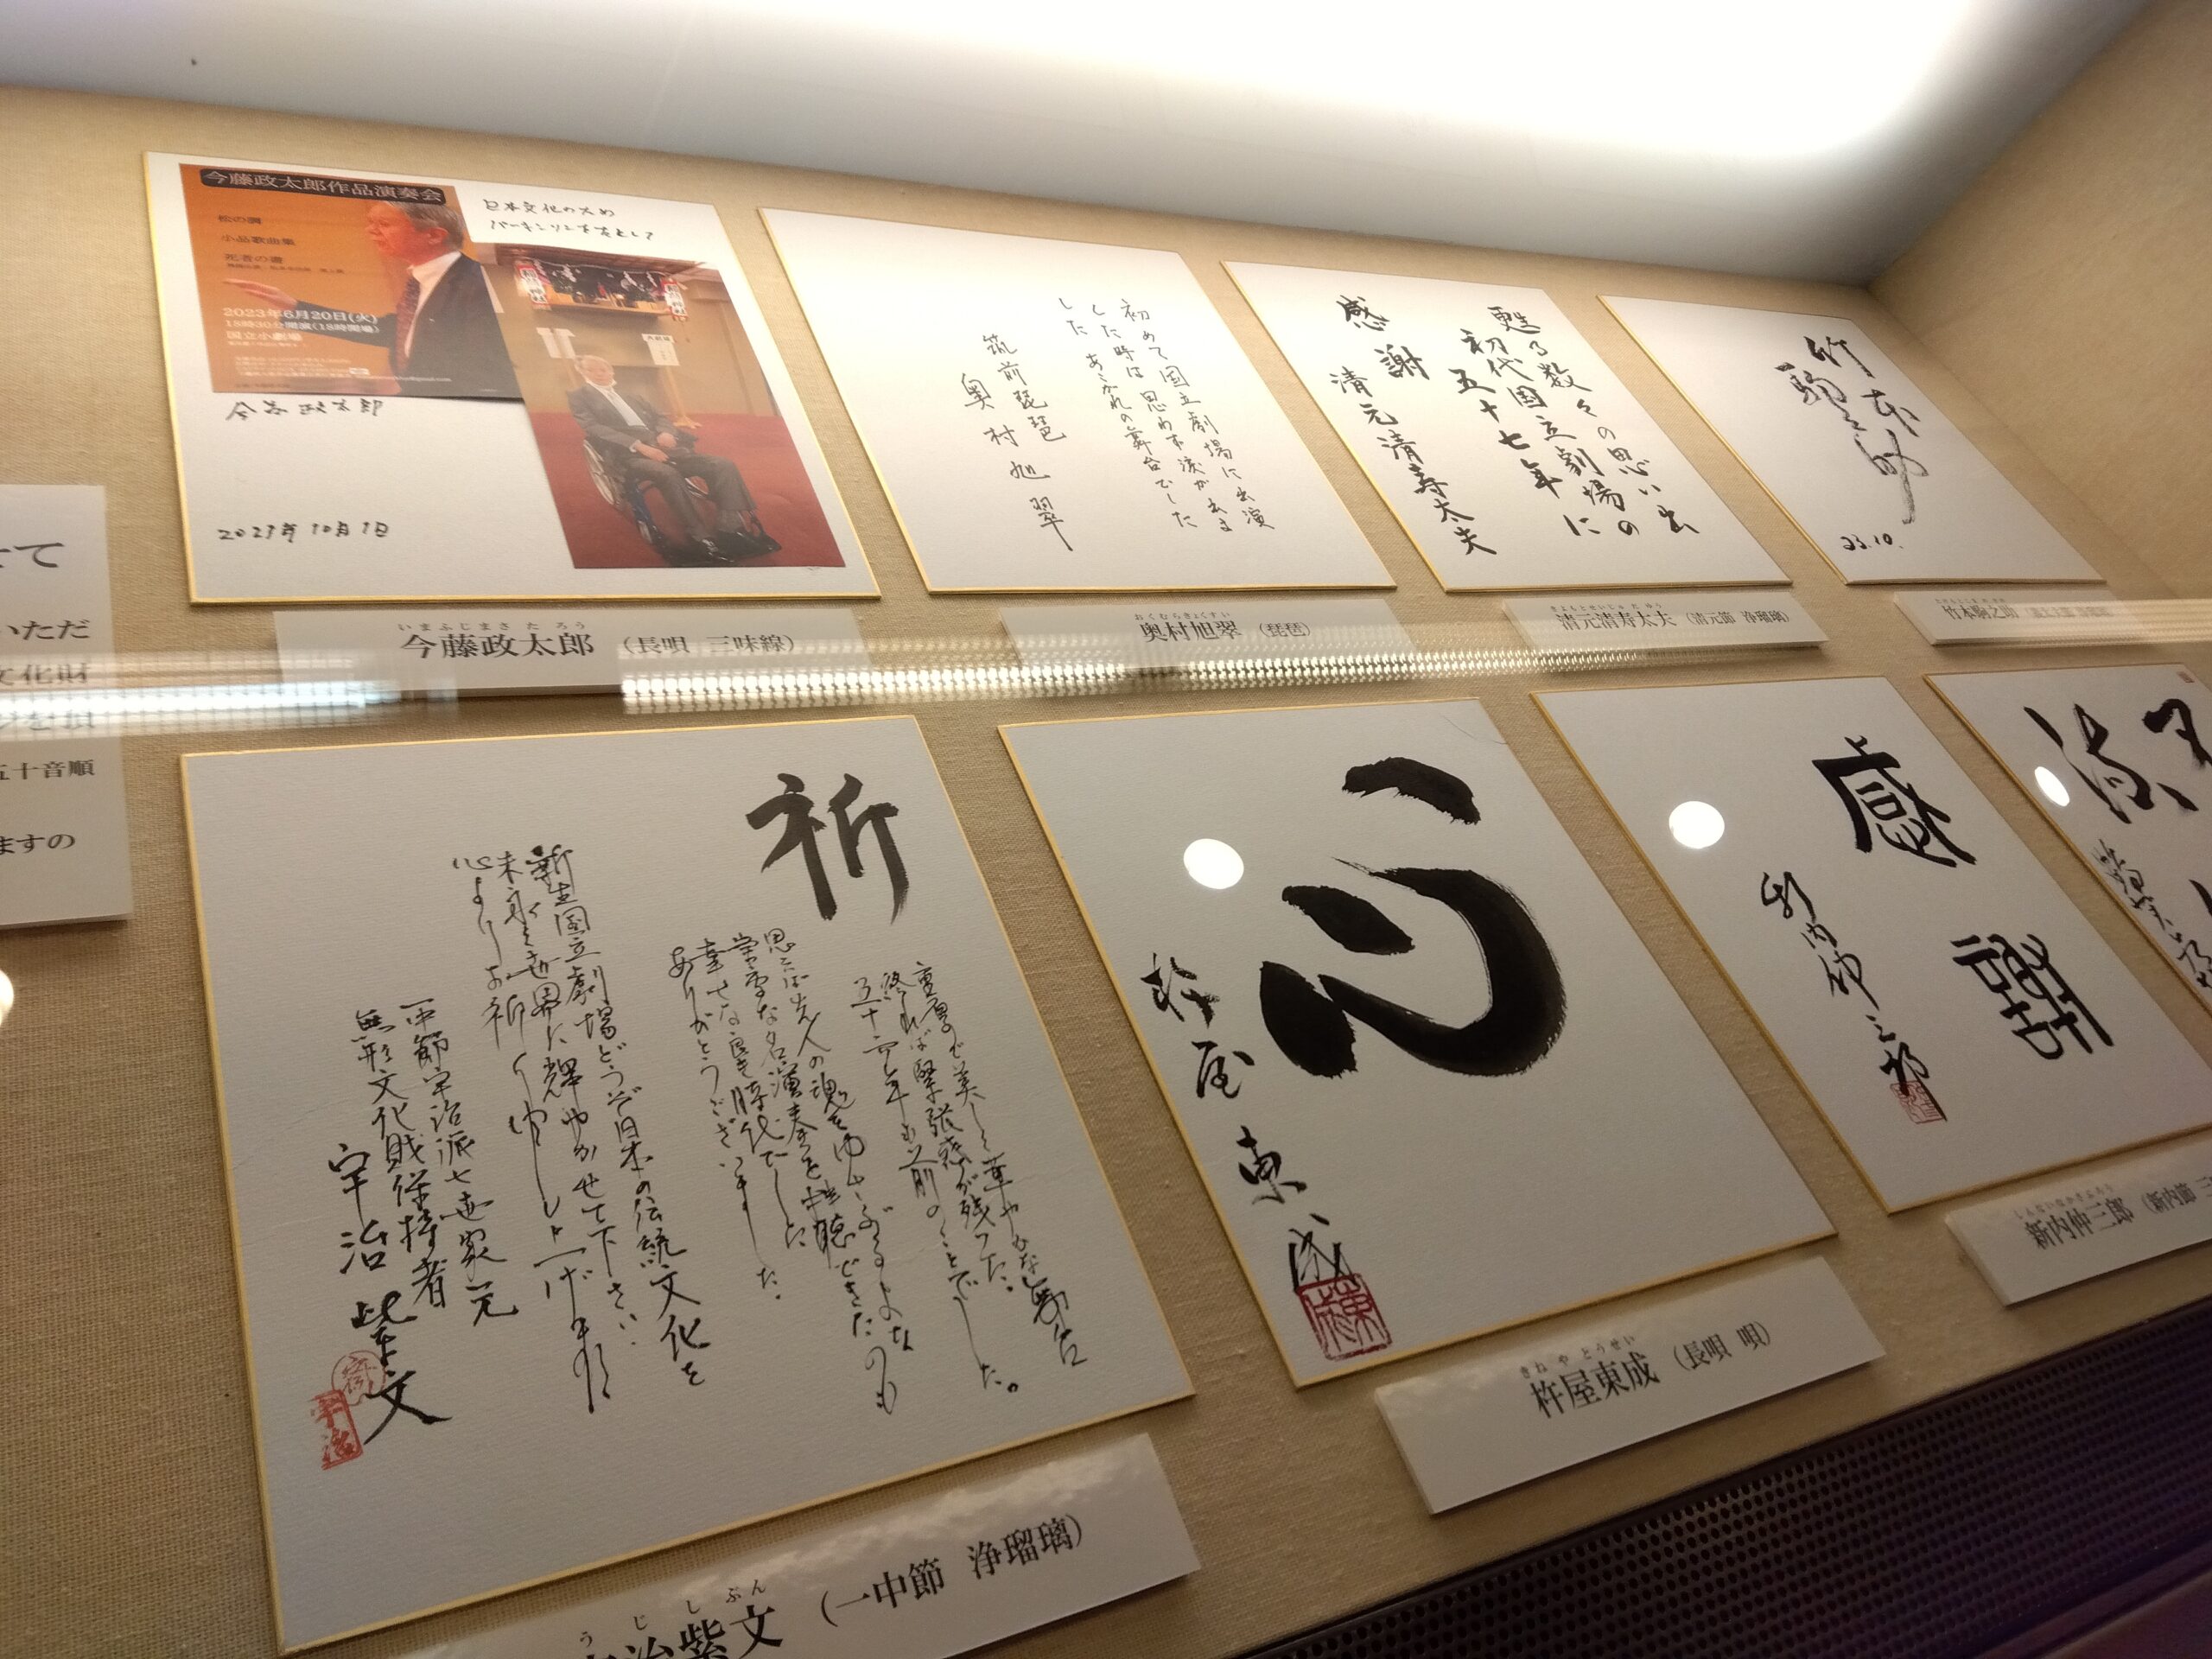 今藤政太郎作品演奏会
松の調
小品歌曲集
死者の書
2023年6月20日(火)
18時30分開演(18時開場)
国立小劇場
日本文化のため
今藤政太郎
2023年10月1日
いまふじまさたろう
今藤政太郎 (長唄 三味線)
初めて国立劇場に出演
した時は思わず涙が出ま
した あこがれの舞台でした
筑前琵琶
奥村旭翠
おくむらきょくすい
奥村旭翠 (琵琶)
甦る数々の思い出
初代国立劇場の
五十七年に
感謝
清元清寿太夫
きよもとせいじゅだゆう
清元清寿太夫 (清元節 浄瑠璃)
竹本
駒之助
23.10.
竹本駒之助
せて
いただ
文化財
五十音順
ますの
祈
重厚で美しく華やかな舞台
終れば緊張感が残った。
五十六年も前のことでした。
思えば先人の魂をゆさぶるような
常事な名演奏を拝聴できたのも
幸せな良き時代でした
ありがとうございました。
新生国立劇場どうぞ日本の伝統文化を
末永く世界に輝やかせて下さい
心よりお祈り申し上げます
一中節宇治派七世家元
無形文化財保持者
宇治紫文
うじしぶん
治紫文 (一中節 浄瑠璃)
心
杵屋東成
きねやとうせい
杵屋東成 (長唄 唄)
感謝
新内仲三郎
しんないなかさぶろう
新内仲三郎 (新内節 三